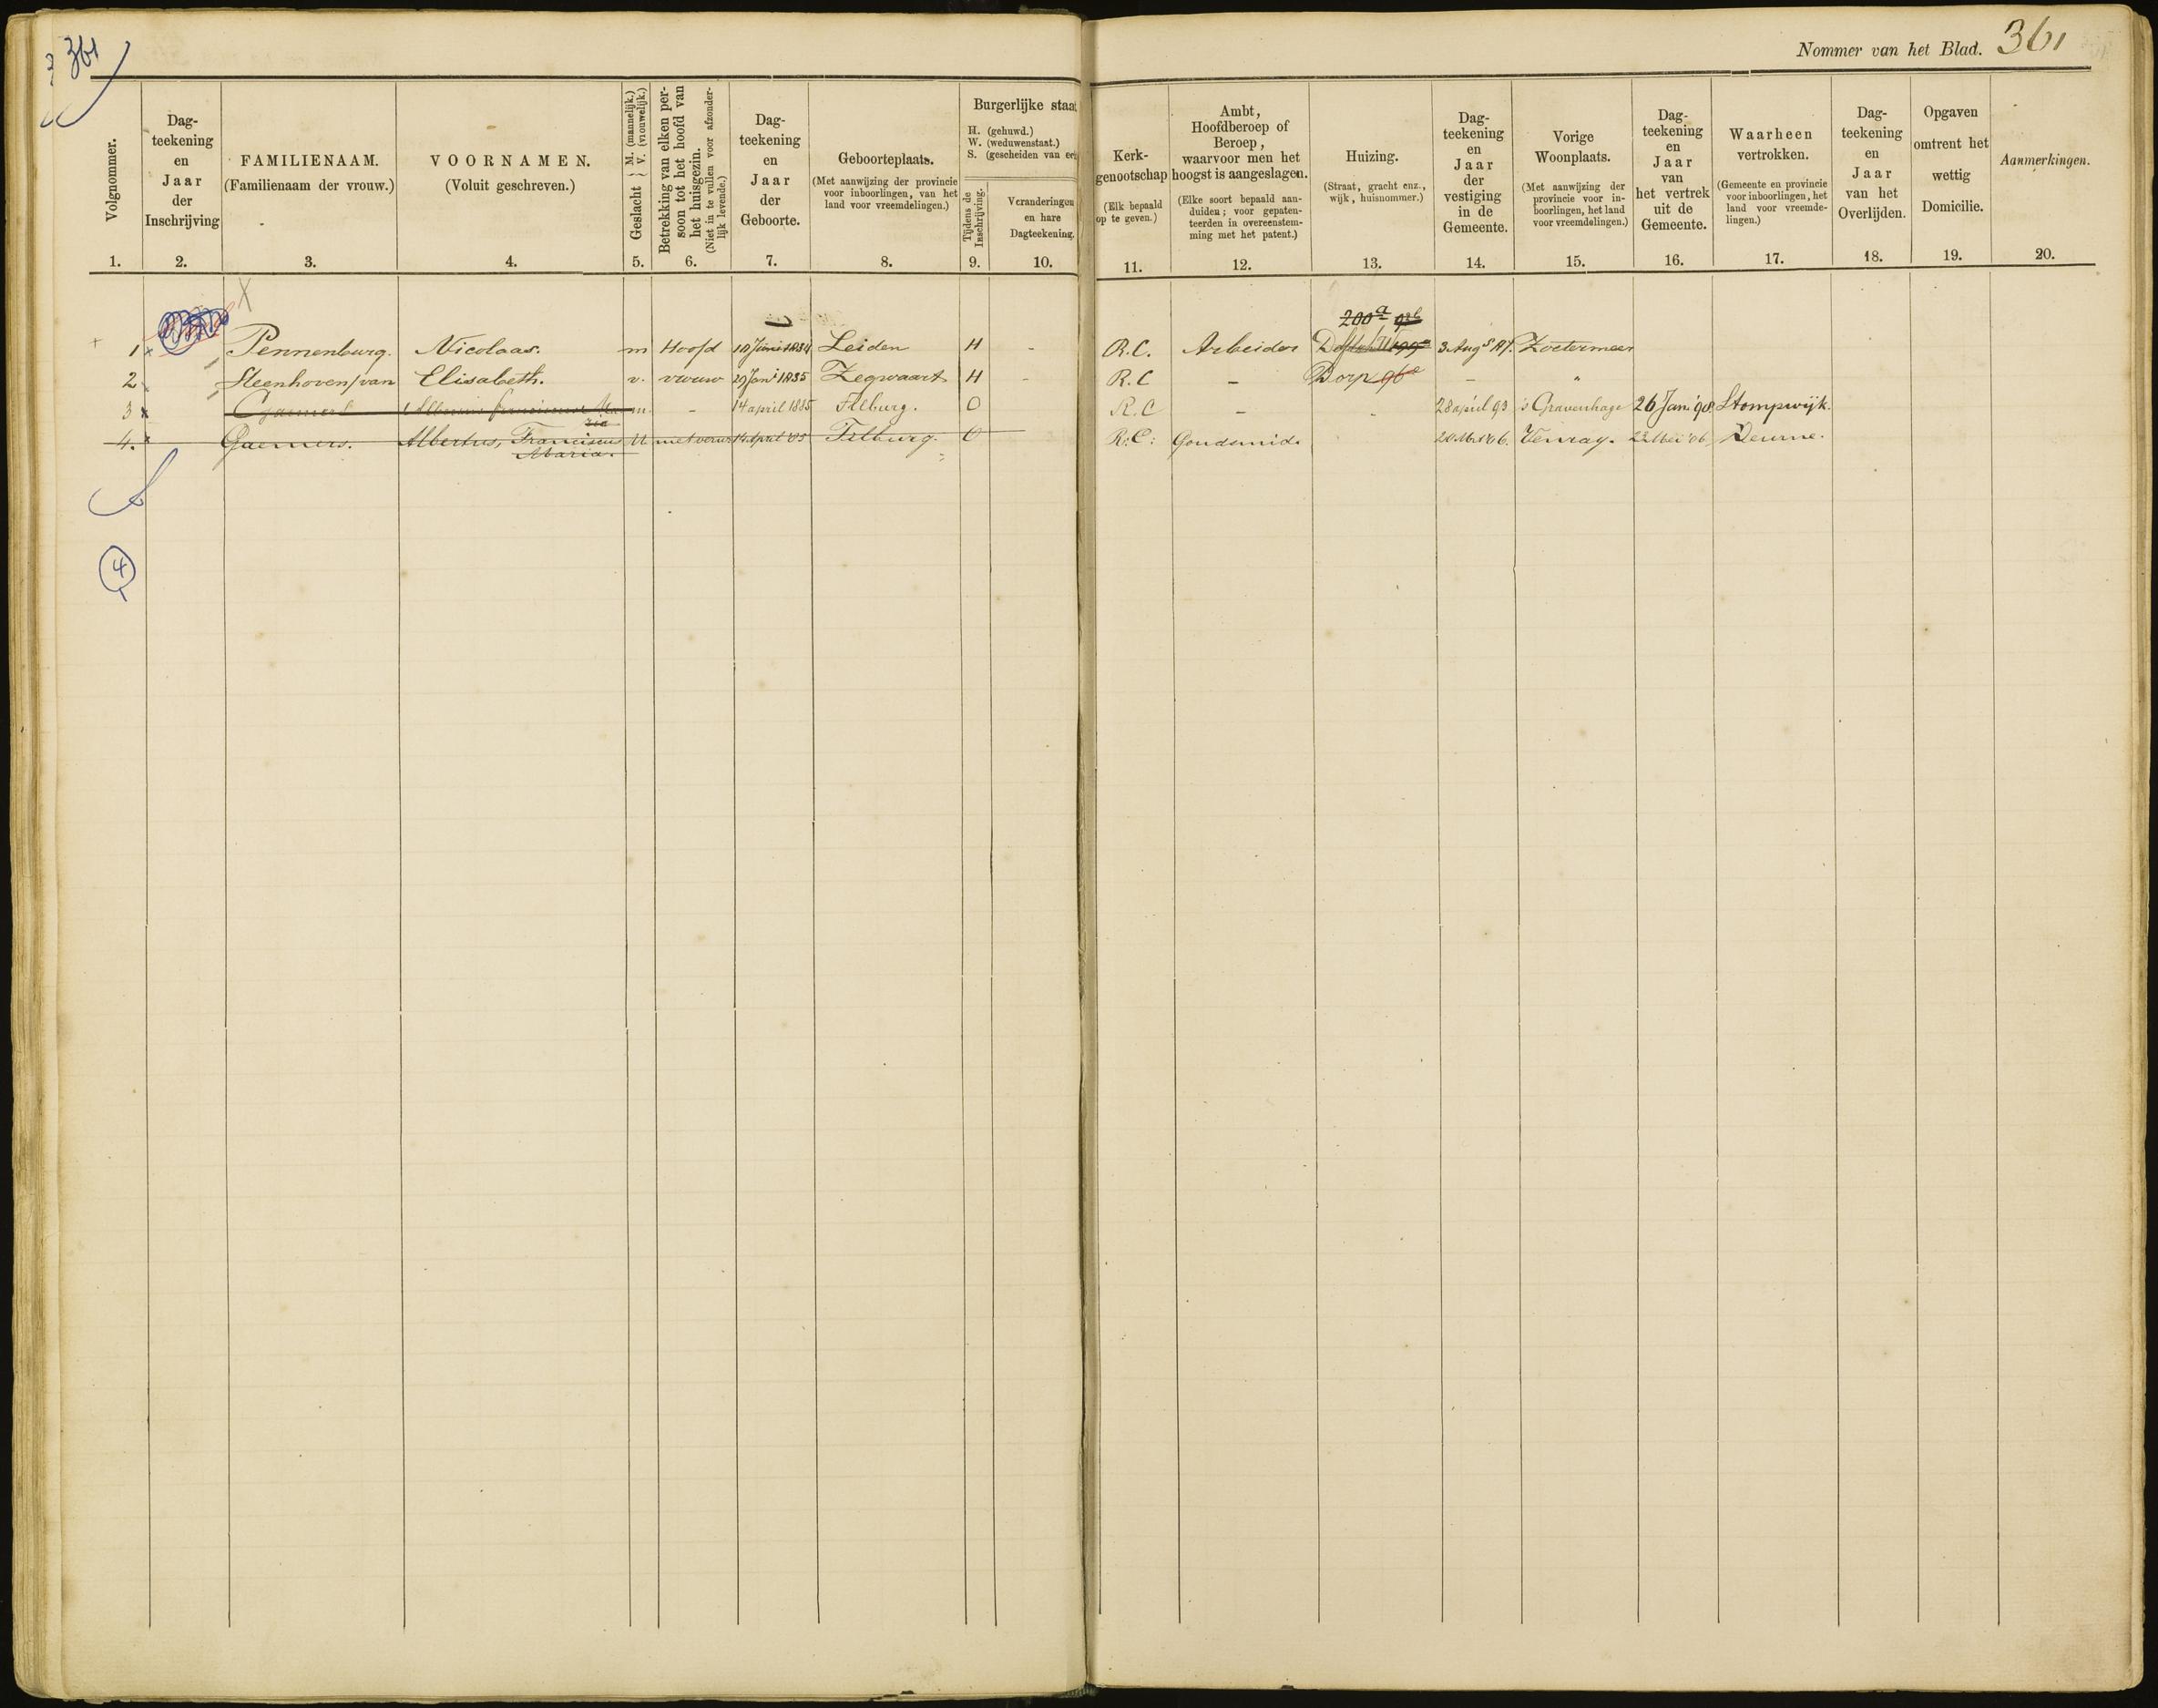 361
Nommer van het Blad. 361
Volgnommer.
Dag-
teekening
en
Jaar
der
Inschrijving
FAMILIENAAM.
(Familienaam der vrouw.)
VOORNAMEN.
(Voluit geschreven.)
Geslacht { M. (mannelijk.) V. (vrouwelijk.)
Betrekking van elken per-
soon tot het hoofd van
het huisgezin.
(Niet in te vullen voor afzonder-
lijk levende.)
Dag-
teekening
en
Jaar
der
Geboorte.
Geboorteplaats.
(Met aanwijzing der provincie
voor inboorlingen, van het
land voor vreemdelingen.)
Burgerlijke staat
H. (gehuwd.)
W. (weduwenstaat.)
S. (gescheiden van ech
Tijdens de
Inschrijving.
Veranderingen
en hare
Dagteekening.
Kerk-
genootschap
(Elk bepaald
op te geven.)
Ambt,
Hoofdberoep of
Beroep,
waarvoor men het
hoogst is aangeslagen.
(Elke soort bepaald aan-
duiden; voor gepaten-
teerden in overeenstem-
ming met het patent.)
Huizing.
(Straat, gracht enz.,
wijk, huisnommer.)
Dag-
teekening
en
Jaar
der
vestiging
in de
Gemeente.
Vorige
Woonplaats.
(Met aanwijzing der
provincie voor in-
boorlingen, het land
voor vreemdelingen.)
Dag-
teekening
en
Jaar
van
het vertrek
uit de
Gemeente.
Waarheen
vertrokken.
(Gemeente en provincie
voor inboorlingen, het
land voor vreemde-
lingen.)
Dag-
teekening
en
Jaar
van het
Overlijden.
Opgaven
omtrent het
wettig
Domicilie.
Aanmerkingen.
1. 2. 3. 4. 5. 6. 7. 8. 9. 10. 11. 12. 13. 14. 15. 16. 17. 18. 19. 20.
200a
1 Pennenburg. Nicolaas. m Hoofd 10 Juni 1834 Leiden H - R.C. Arbeider 3 Augs Zoetermeer
2 Steenhoven/van Elisabeth. v. vrouw 29 Jani 1835 Zegwaart H - R.C - Dorp 96a - "
3 m. - 14 april 1885 Tilburg. O R.C - 28 april 93 's Gravenhage 26 Jan. '98 Stompwijk.
4. Gaemers. Albertus, Franciscus M 14 April '85 Tilburg. O R.C: Goudsmid. Venray. 22 Mei '06 Deurne.
Maria.
4